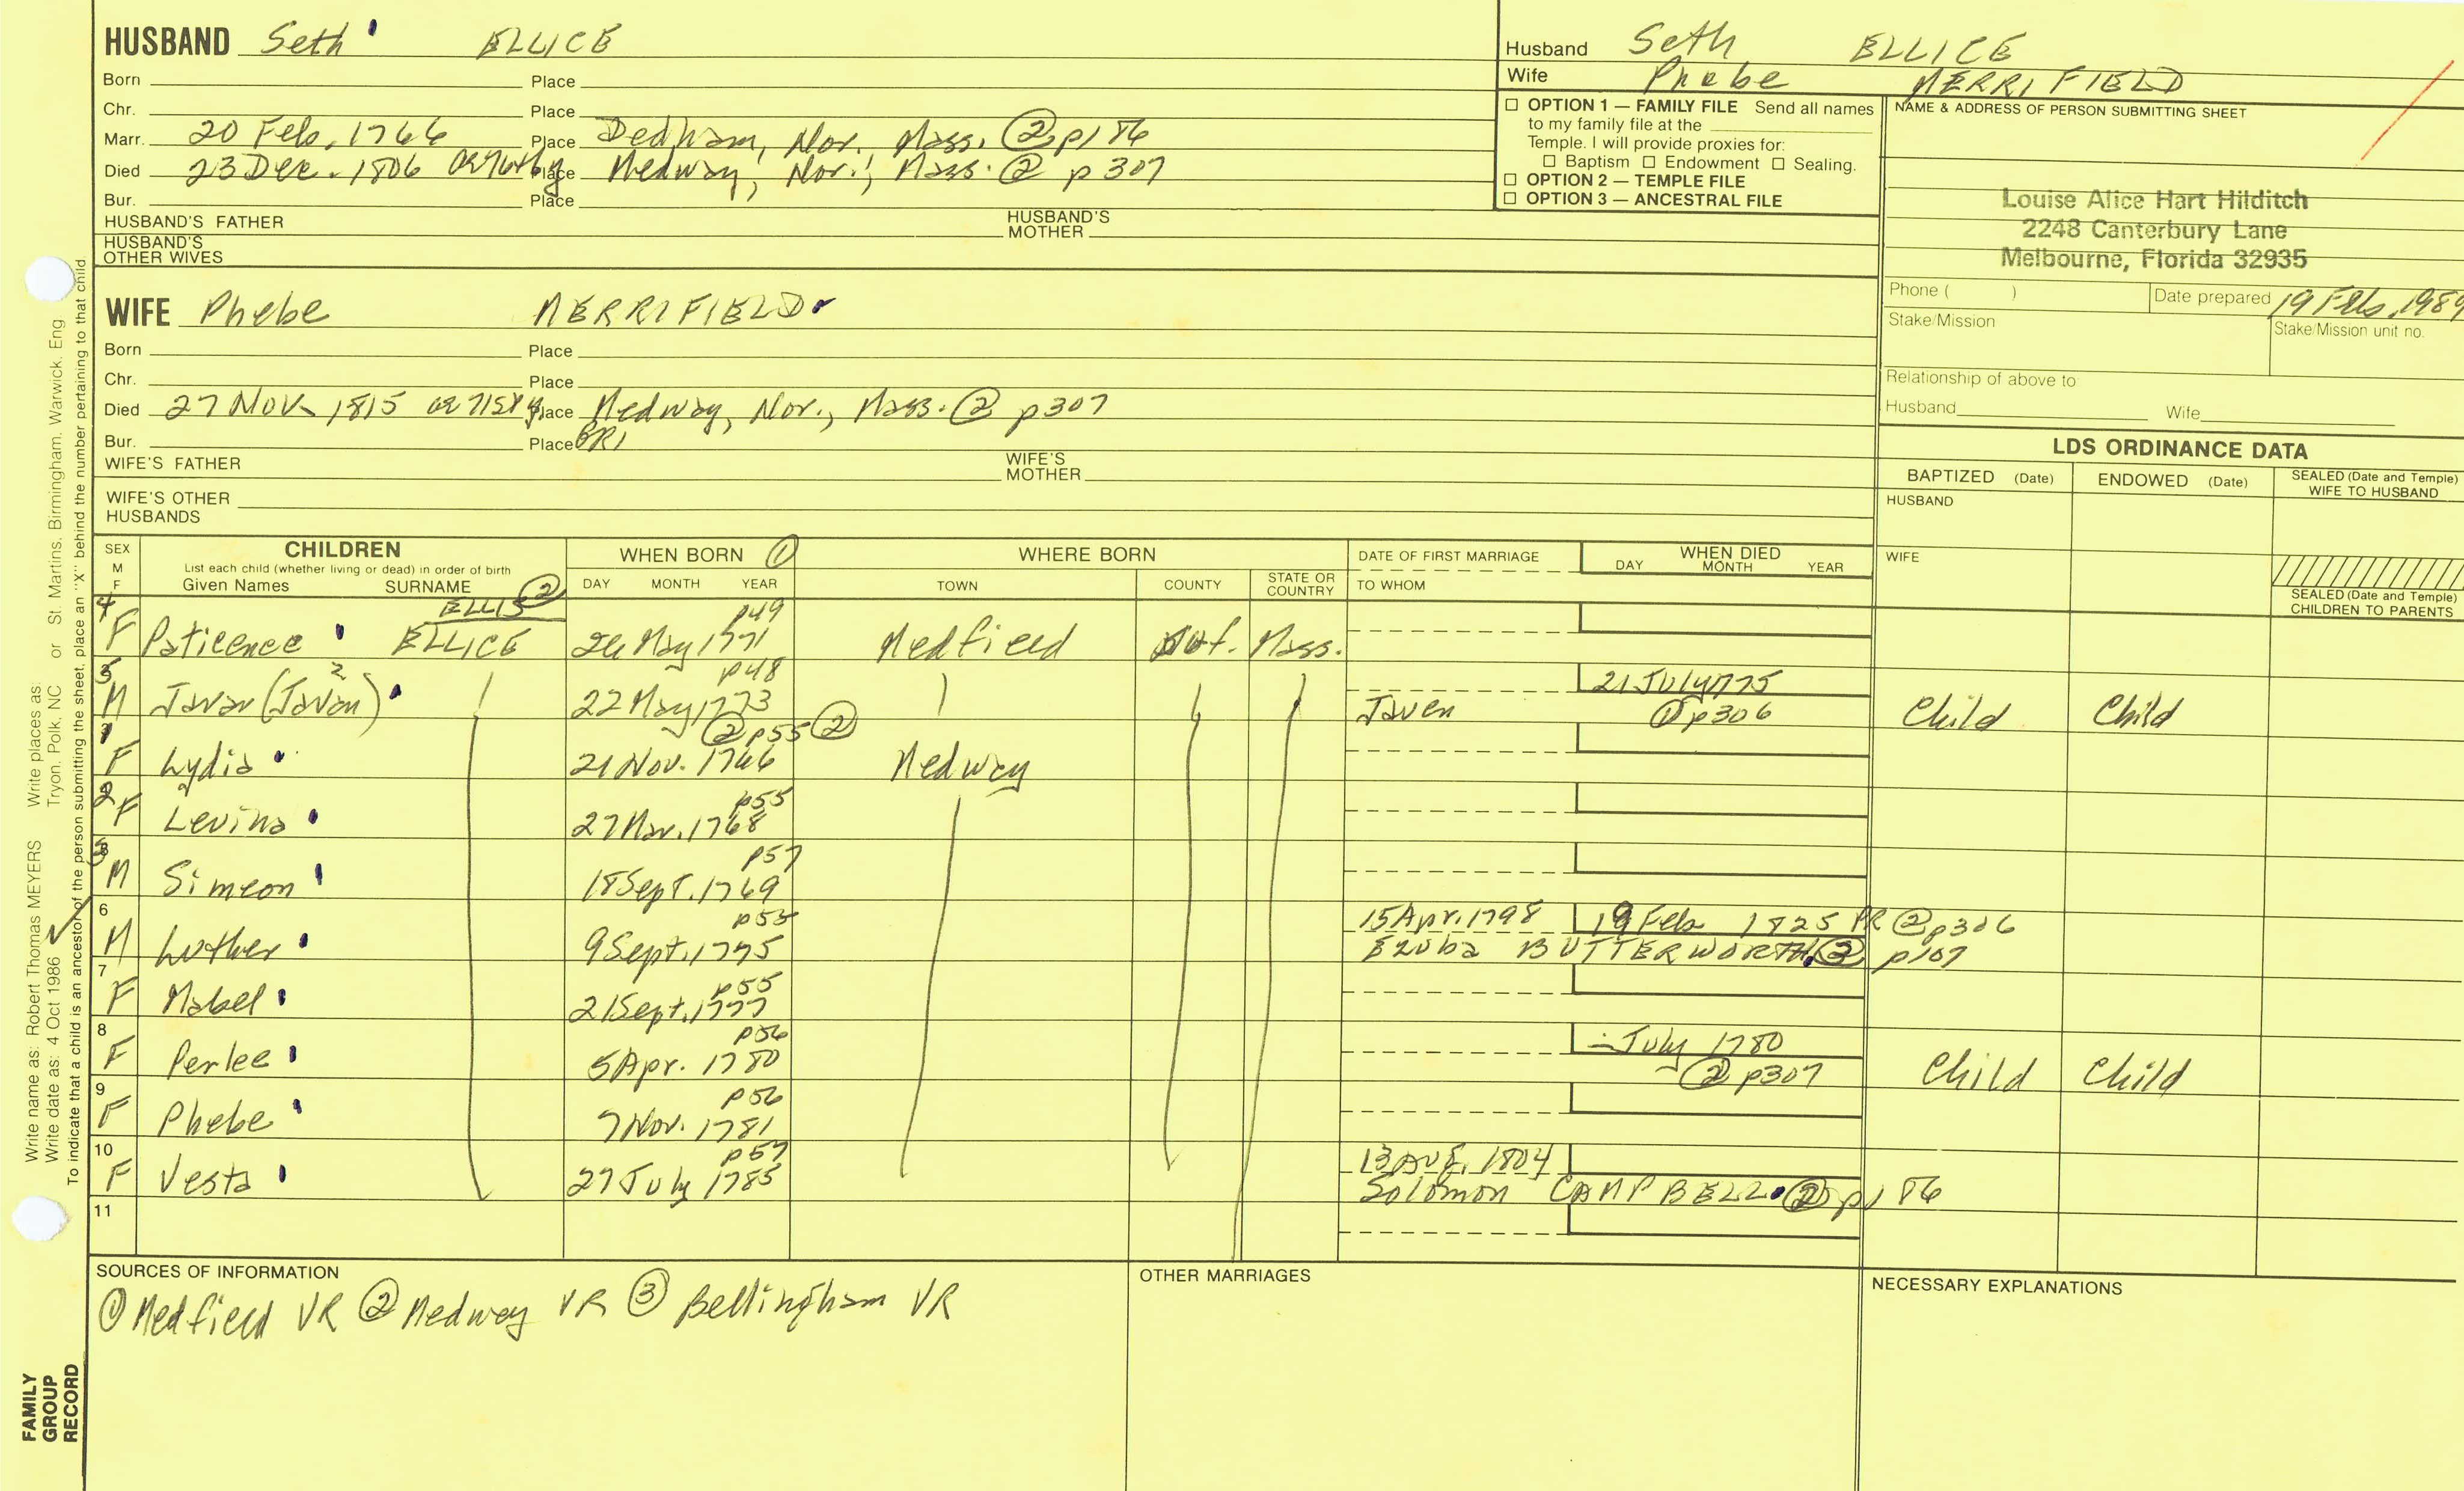 HUSBAND Seth ELLICE
Born Place
Chr. Place
Marr. 20 Feb. 1766 Place Dedham, Nor. Mass. ② p186
Died 23 Dec. 1806 Place Medway, Nor., Mass. ② p307
Bur. Place
HUSBAND'S FATHER HUSBAND'S MOTHER
HUSBAND'S OTHER WIVES
Husband Seth ELLICE
Wife Phebe MERRIFIELD
☐ OPTION 1 — FAMILY FILE Send all names
to my family file at the
Temple. I will provide proxies for:
☐ Baptism ☐ Endowment ☐ Sealing.
☐ OPTION 2 — TEMPLE FILE
☐ OPTION 3 — ANCESTRAL FILE
NAME & ADDRESS OF PERSON SUBMITTING SHEET
Louise Alice Hart Hilditch
2248 Canterbury Lane
Melbourne, Florida 32935
Phone ( ) Date prepared 19 Feb. 1989
Stake/Mission Stake/Mission unit no.
Relationship of above to
Husband Wife
WIFE Phebe MERRIFIELD
Born Place
Chr. Place
Died 27 Nov. 1815 ae 71st y Place Medway, Nor., Mass. ② p307
Bur. Place GR1
WIFE'S FATHER WIFE'S MOTHER
WIFE'S OTHER HUSBANDS
LDS ORDINANCE DATA
BAPTIZED (Date) ENDOWED (Date) SEALED (Date and Temple) WIFE TO HUSBAND
HUSBAND
WIFE
SEALED (Date and Temple) CHILDREN TO PARENTS
SEX M F CHILDREN WHEN BORN ① WHERE BORN DATE OF FIRST MARRIAGE WHEN DIED
List each child (whether living or dead) in order of birth
Given Names SURNAME DAY MONTH YEAR TOWN COUNTY STATE OR COUNTRY TO WHOM DAY MONTH YEAR
ELLIS ② p49
4 F Paticence ELLICE 26 May 1771 Medfield Nof. Mass.
2 p48 21 July 1775
5 M Javar (Javan) 22 May 1773 Javen ① p306 Child Child
② p55 ②
1 F Lydia 21 Nov. 1766 Medway
p55
2 F Levina 27 Mar. 1768
p57
3 M Simeon 18 Sept. 1769
6 p55 15 Apr. 1798 19 Feb 1825 PR ② p306
M Luther 9 Sept. 1775 Ezuba BUTTERWORTH ③ p107
7 p55
F Mabel 21 Sept. 1777
8 p56 - July 1780
F Perlee 5 Apr. 1780 ② p307 Child Child
9 p56
F Phebe 7 Nov. 1781
10 p57 13 Aug. 1804
F Vesta 27 July 1785 Solomon CAMPBELL ② p186
11
SOURCES OF INFORMATION
① Medfield VR ② Medway VR ③ Bellingham VR
OTHER MARRIAGES
NECESSARY EXPLANATIONS
Write name as: Robert Thomas MEYERS Write places as: St. Martins, Birmingham, Warwick, Eng
Write date as: 4 Oct 1986 Tryon, Polk, NC or
To indicate that a child is an ancestor of the person submitting the sheet, place an "X" behind the number pertaining to that child
FAMILY
GROUP
RECORD